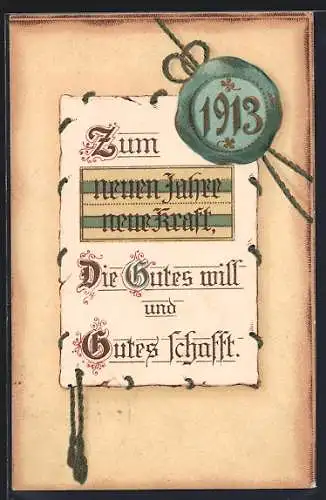 1913
Zum
neuen Jahre
neue Kraft,
Die Gutes will
und
Gutes schafft.